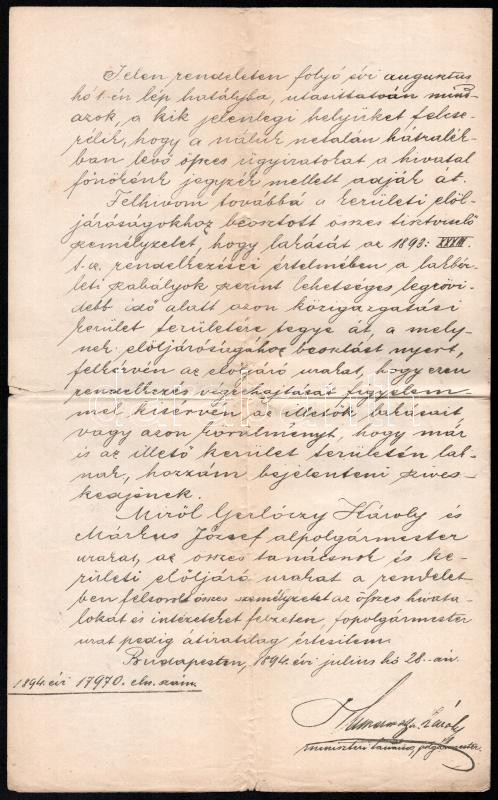 Jelen rendeletem folyó évi augusztus
hó 1-én lép hatályba, utasíttatván mind
azok, a kik jelenlegi helyüket felcse-
rélik, hogy a náluk netalán hátralék-
ban lévő összes ügyiratokat a hivatal
főnökének jegyzék mellett adják át.
Felhivom továbbá a kerületi elöl-
járóságokhoz beosztott összes tisztviselő
személyzetet, hogy lakását az 1893: XXXIII
t-cz. rendelkezései értelmében a lakbér-
leti szabályok szerint lehetséges legrövi-
debb idő alatt azon közigazgatási
kerület területére tegye át, a mely-
nek elöljáróságához beosztást nyert,
felkérvén az elöljáró urakat, hogy ezen
rendelkezés végrehajtását figyelem-
mel kisérvén, az illetők lakásait
vagy azon körülményt, hogy már
is az illető kerület területén lak-
nak, hozzám bejelenteni szives-
kedjenek.
Miről Gerlóczy Károly és
Márkus József alpolgármester
urakat, az összes tanácsnok és ke-
rületi elöljáró urakat a rendelet-
ben felsorolt összes személyzetet az összes hivata-
lokát és intézeteket felzeten, főpolgármester
urat pedig átiratilag értesitem.
Budapesten, 1894. évi július hó 28.-án.
1894. évi 17970. eln. szám.
Kamermayer Károly
miniszteri tanácsos, polgármester.